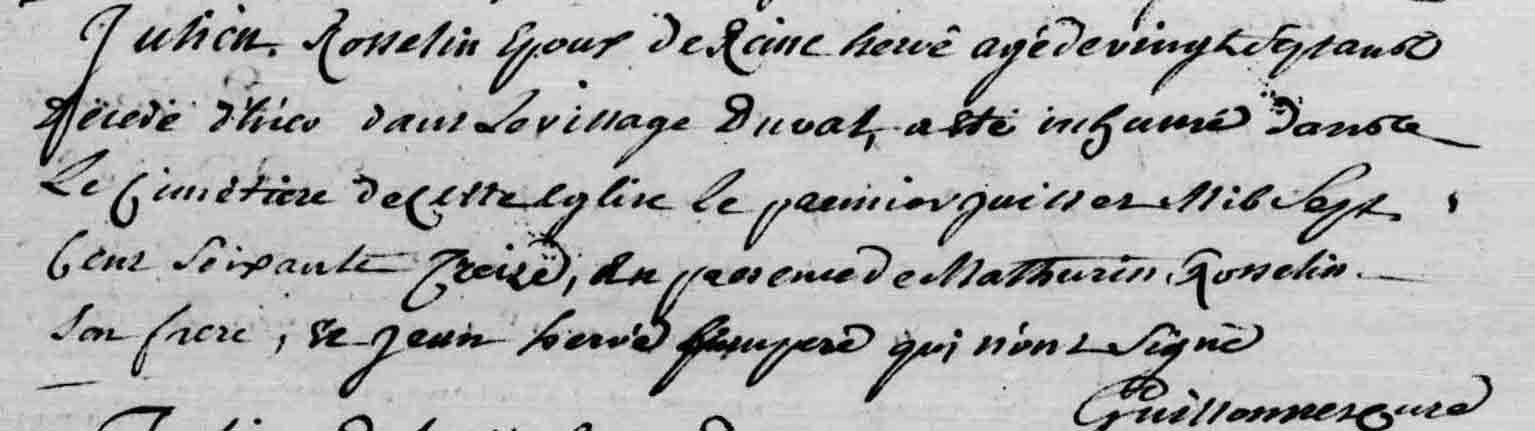 Julien Rosselin Epoux de Reine hervé agé de vingt sept ans
Décedé d'hier dans Le village Duval, a été inhumé dans
Le Cimetiere de Cette eglise le premier juillet Mil Sept
Cent Soixante Treize, En presence de Mathurin Rosselin
Son frere, de Jean hervé qui n'ont Signé